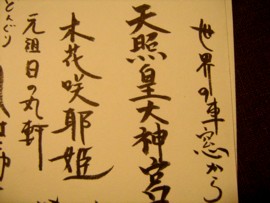 世界の車窓から
天照皇大神宮
木花咲耶姫
元祖日の丸軒
どんぐり